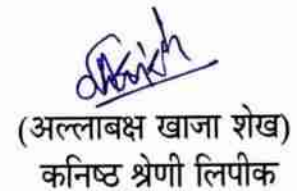 (अल्लाबक्ष खाजा शेख)
कनिष्ठ श्रेणी लिपीक